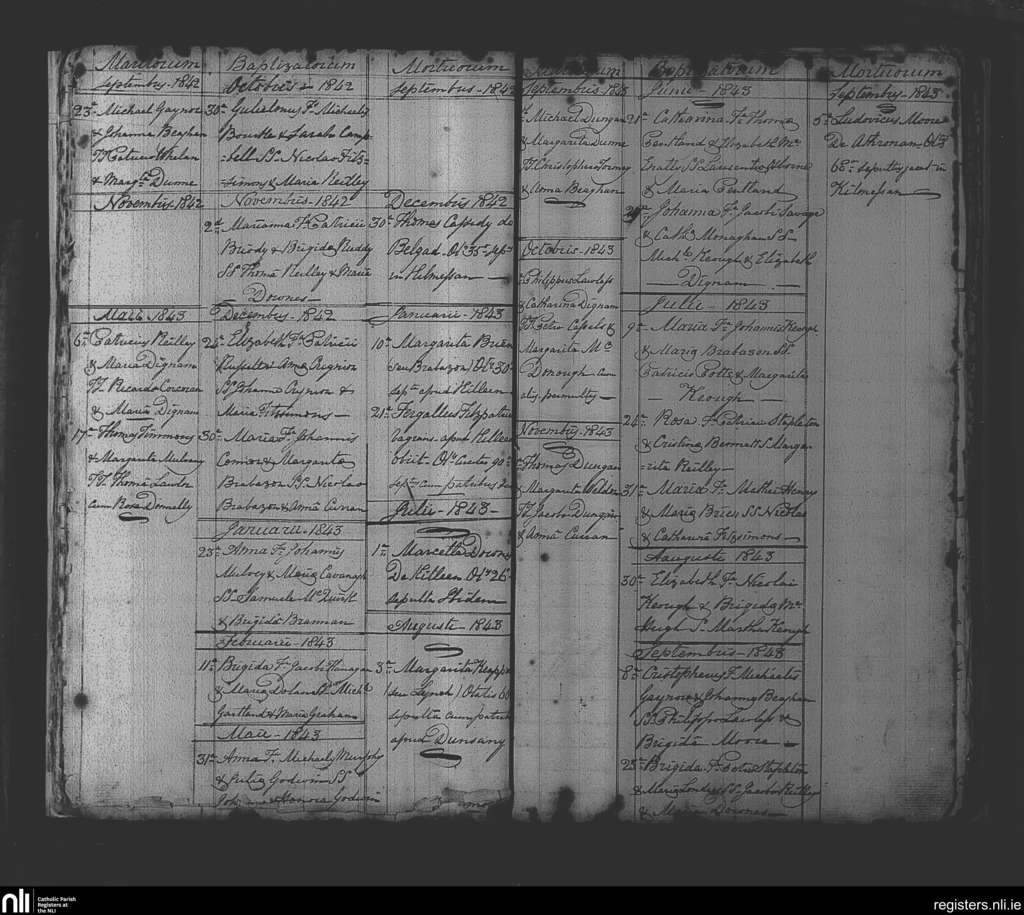 Maritorum
Septembris 1842
23 Michael Gaynor
& Johanna Beaghan
TT Patricio Whelan
& Margta Dunne
Novembris 1842
Maii 1843
6 Patricius Reilley
& Maria Dignam
TT Ricardo Corcoran
& Maria Dignam
17 Thomas Timmons
& Margarita Mulvany
TT Thoma Lawler
cum Rosa Donnelly
Baptizatorum
Octobris 1842
30 Gulielmus Fs Michaelis
Bourke & Sarah Camp
=bell SS Nicolao Fitz=
=simons & Maria Reilley
Novembris 1842
2d Marianna Fa Patricii
Brody & Brigida Ruddy
SS Thoma Reilley & Maria
Downes
Decembris 1842
Elizabeth Fa Patricii
Maria Fitzsimons
30 Maria Fa Johannis
Connor & Margarita
Brabazon SS Nicolao
Brabazon & Anna Curran
Januarii 1843
23 Anna Fa Johannis
Mulvey & Maria Cavanagh
SS Samuele McQuirk
& Brigida Brannan
Februarii 1843
11 Brigida Fa Jacobi Flanagan
& Maria Dolan SS Michl
Gartland & Maria Graham
Maii 1843
31 Anna Fa Michaelis Murphy
& Julia Godwin SS
& Honora Godwin
Mortuorum
Septembris 1842
Decembris 1842
30 Thomas Cassidy de
Belgad Ots 35 sepr
in Kilmessan
Januarii 1843
10 Margarita Brien
seu Brabazon Ots 30
septa apud Killeen
21 Fergallus Fitzpatric
vagrans apud Killeen
obiit Ots Circiter 90
septs cum patribus
Julii 1843
1 Marcella Downes
De Killeen Ots 26
sepulta Ibidem
Augusti 1843
3 Margarita Keappo
(seu Lynch) Otatis 60
sepulta cum patribus
apud Dunsany
Septembris 1843
Michael Dungan
& Margarita Dunne
TT Christophero Tormey
& Anna Beaghan
Octobris 1843
Philippus Lawless
& Catharina Dignam
TT Petro Cassels &
Margarita Mc
Donough cum
aliis permultis
Novembris 1843
Thomas Dungan
& Margarita Weldon
TT Jacobo Dungan
& Anna Curran
Baptizatorum
Junii 1843
21 Catharina Fa Thoma
Gentland & Elizabeth Mc
Gratte SS Laurentio
& Maria Gentland
29 Johanna Fa Jacobi Savage
& Cathe Monaghan SS
Michle Keough & Elizabeth
Dignam
Julii 1843
9 Maria Fa Johannis Keough
& Maria Brabazon SS
Patricio Potts & Margarita
Keough
25 Rosa Fa Patricii Stapleton
& Cristina Bennett S Margar
=rita Reilley
31 Maria Fa Mathei Henry
& Maria Brien SS Nicolao
& Catharina Fitzsimons
Augusti 1843
30 Elizabeth Fa Nicolai
Keough & Brigida Mc
Hugh S Martha Keough
Septembris 1843
8 Cristopherus F Michaelis
Gaynor & Johanna Beaghan
SS Philippo Lawless &
Brigida Moore
25 Brigida Fa Petri Stapleton
& Maria SS Jacobo Reilley
& Maria Downes
Mortuorum
Septembris 1843
5 Ludovicus Moore
De Athronan Ots
68 sepultus jacet in
Kilmessan
nli
Catholic Parish
Registers at
the NLI
registers.nli.ie